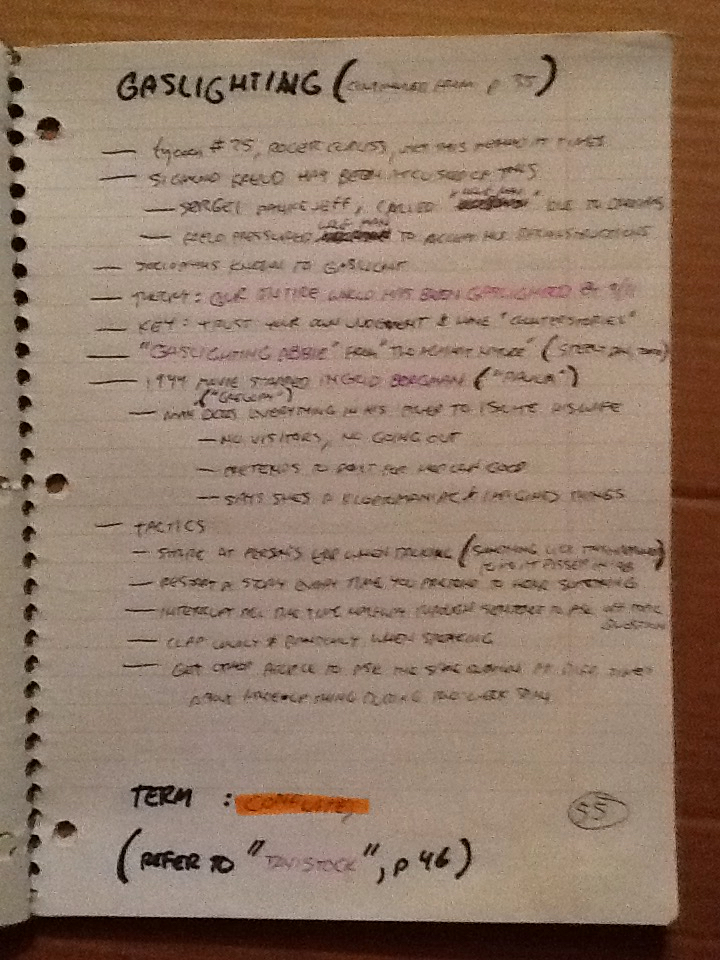 GASLIGHTING (CONTINUED FROM p 35)
— tycoon #25, ROGER, THIS METHOD AT TIMES
— SIGMUND FREUD HAS BEEN ACCUSED OF THIS
— SERGEI, CALLED "WOLF MAN" DUE TO DREAMS
— FREUD PRESSURED WOLF MAN TO ACCEPT HIS RECONSTRUCTIONS
— SOCIOPATHS KNOWN TO GASLIGHT
— THEORY: OUR ENTIRE WORLD HAS BEEN GASLIGHTED BY 9/11
— KEY: TRUST YOUR OWN JUDGEMENT & HAVE "COUNTERSTORIES"
— "GASLIGHTING ABBIE" FROM "TWO AGAINST NATURE" (STEELY DAN, 2000)
— 1944 MOVIE STARRED INGRID BERGMAN ("PAULA")
— MAN DOES EVERYTHING IN HIS POWER TO ISOLATE HIS WIFE
— NO VISITORS, NO GOING OUT
— PRETENDS TO DO IT FOR HER OWN GOOD
— SAYS SHES A KLEPTOMANIAC & IMAGINED THINGS
— TACTICS
— STARE AT PERSON'S EAR WHEN TALKING (SOMETHING LIKE THIS
— RESTART A STORY EVERY TIME YOU PRETEND TO HEAR SOMETHING
— INTERRUPT ALL THE TIME HALFWAY THROUGH SENTENCE TO ASK OFF TOPIC
QUESTION
— CLAP LOUDLY & RANDOMLY WHEN SPEAKING
— GET OTHER PEOPLE TO ASK THE SAME QUESTION AT DIFF. TIMES
ABOUT THING DURING THE WEEK
TERM :
55
(REFER TO "TAVISTOCK", p 46)